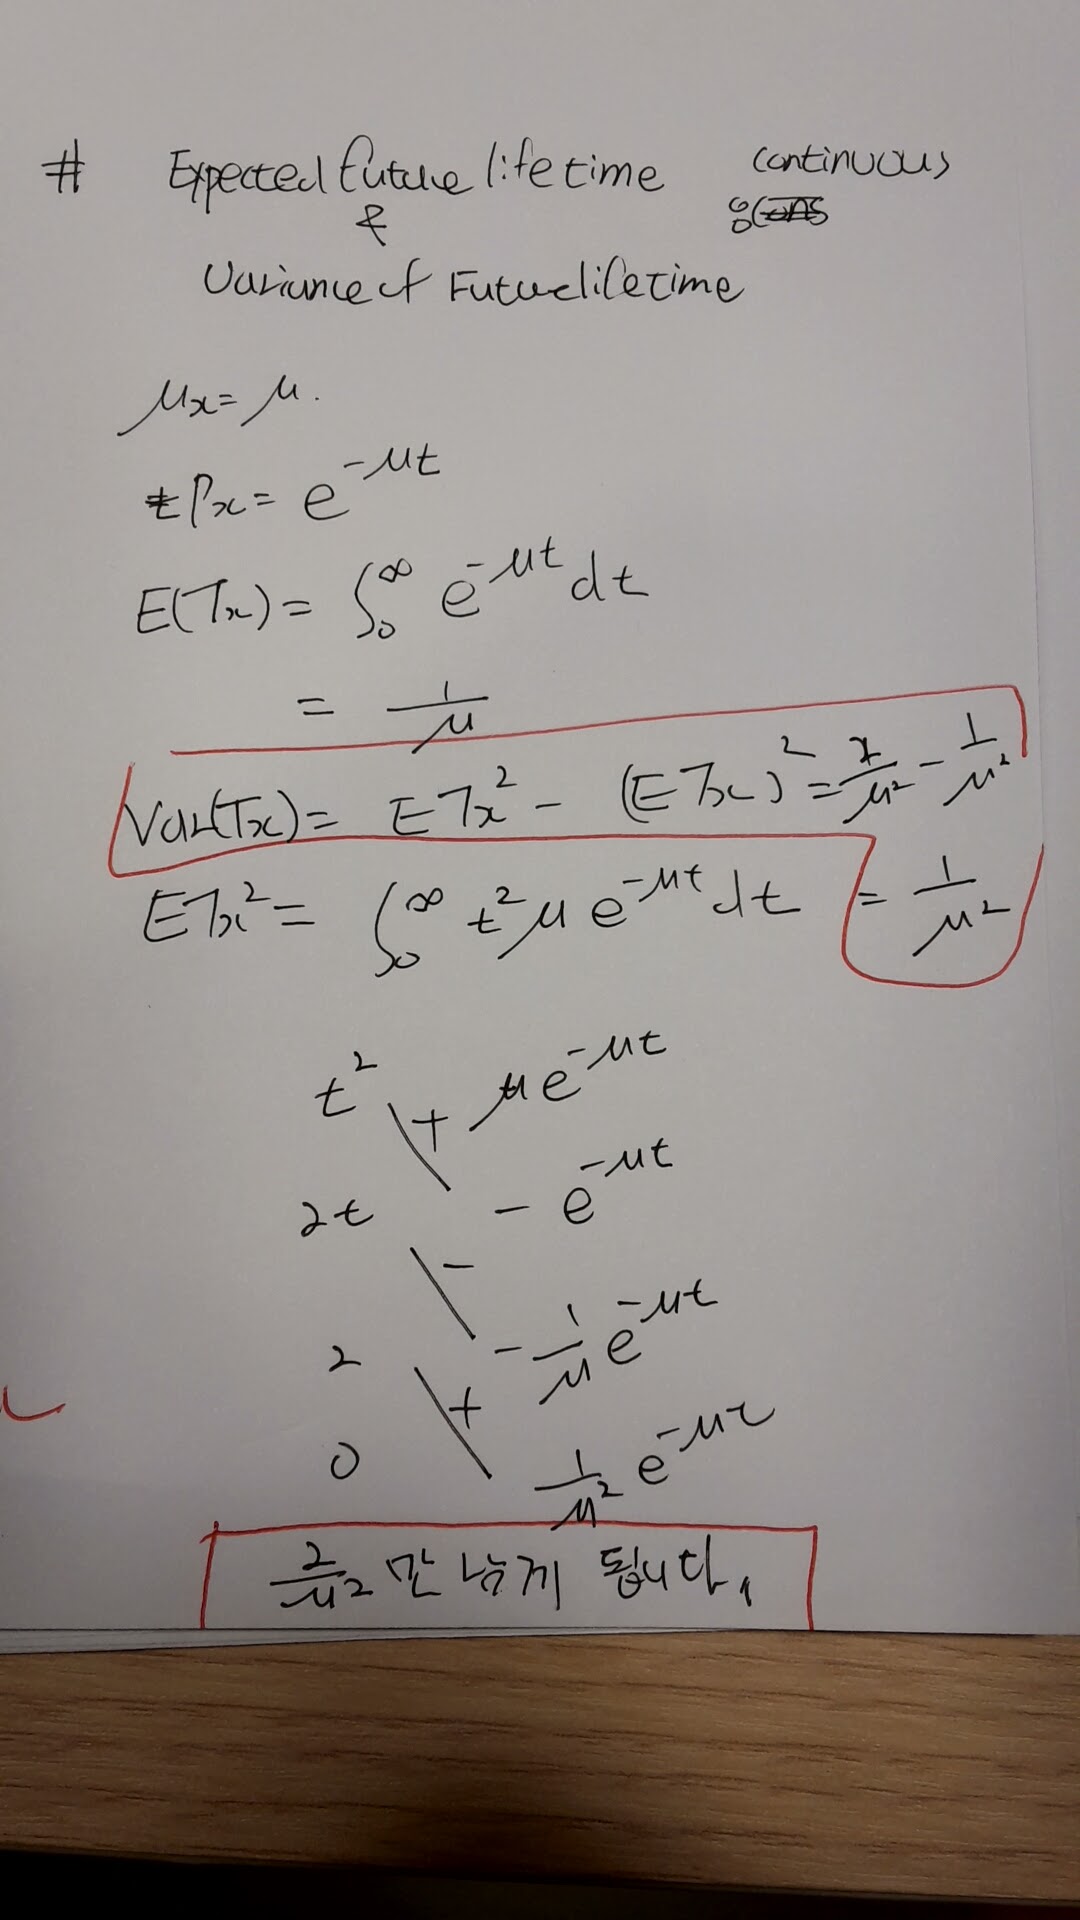 # Expected future lifetime continuous
&
Variance of Future lifetime
μx = μ.
tPx = e^-μt
E(Tx) = ∫₀^∞ e^-μt dt
= 1/μ
Var(Tx) = ETx² - (ETx)² = 2/μ² - 1/μ²
ETx² = ∫₀^∞ t²μe^-μt dt
= 1/μ²
t² + μe^-μt
2t - e^-μt
-
2 - 1/μ e^-μt
+
0 1/μ² e^-μt
2/μ²만 남게 됩니다.